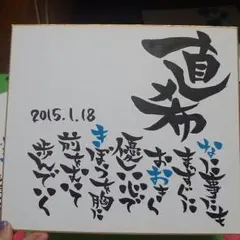 直希
2015.1.18
なに事にも
おおきく
優しい心で
きぼうを胸に
前をむいて
歩んでいく